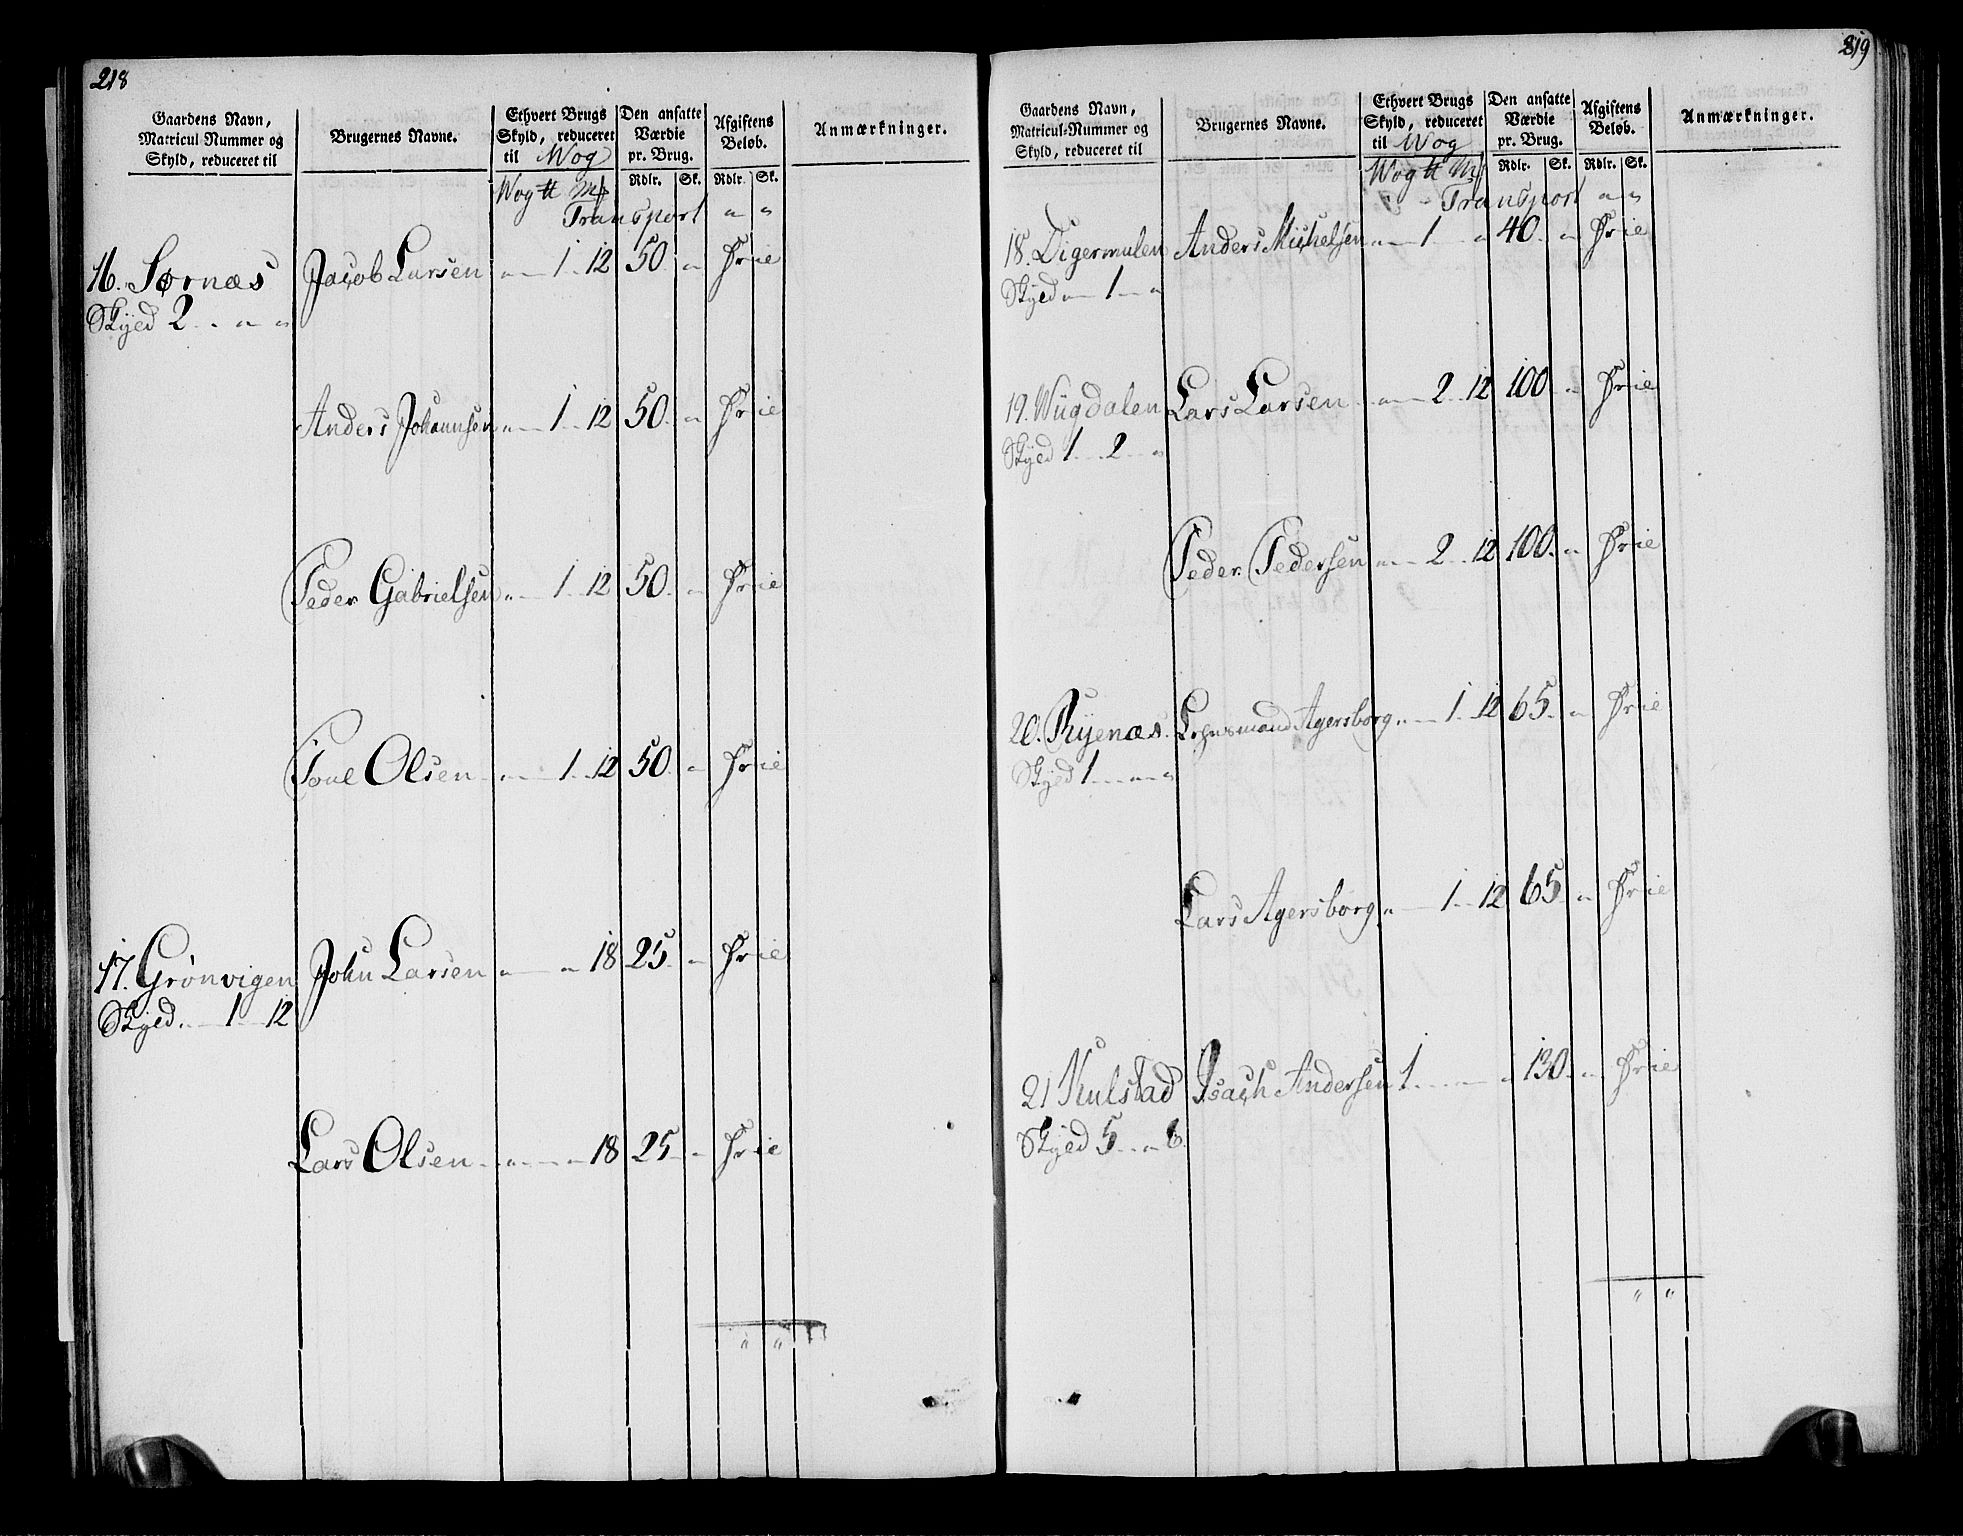 218
Gaardens Navn, Matricul Nummer og Skyld, reduceret til
Brugernes Navne.
Ethvert Brugs Skyld, reduceret til Wog
Den ansatte Værdie pr. Brug.
Afgiftens Beløb.
Anmærkninger.
Wog ℔ Mk Rdlr. Sk. Rdlr. Sk.
Transport " "
16. Sørnæs Jacob Larsen " 1 12 50 " Frie
Skyld 2 " "
Anders Johannsen " 1 12 50 " Frie
Peder Gabrielsen " 1 12 50 " Frie
Poul Olsen " 1 12 50 " Frie
17. Grønvigen John Larsen " " 18 25 " Frie
Skyld " 1 12
Lars Olsen " " 18 25 " Frie
" "
219
Gaardens Navn, Matricul-Nummer og Skyld, reduceret til
Brugernes Navne.
Ethvert Brugs Skyld, reduceret til Wog
Den ansatte Værdie pr. Brug.
Afgiftens Beløb.
Anmærkninger.
Wog ℔ Mk Rdlr. Sk. Rdlr. Sk.
Transport " "
18. Digermulen Anders Michelsen " 1 " 40 " Frie
Skyld " 1 "
19. Wugdalen Lars Larsen " 2 12 100 " Frie
Skyld 1 2 "
Peder Pedersen " 2 12 100 " Frie
20. Ryenæs Lehnsmand Agersborg " 1 12 65 " Frie
Skyld 1 " "
Lars Agersborg " 1 12 65 " Frie
21 Kulstad Isach Andersen 1 " " 130 " Frie
Skyld 5 " 6
" "